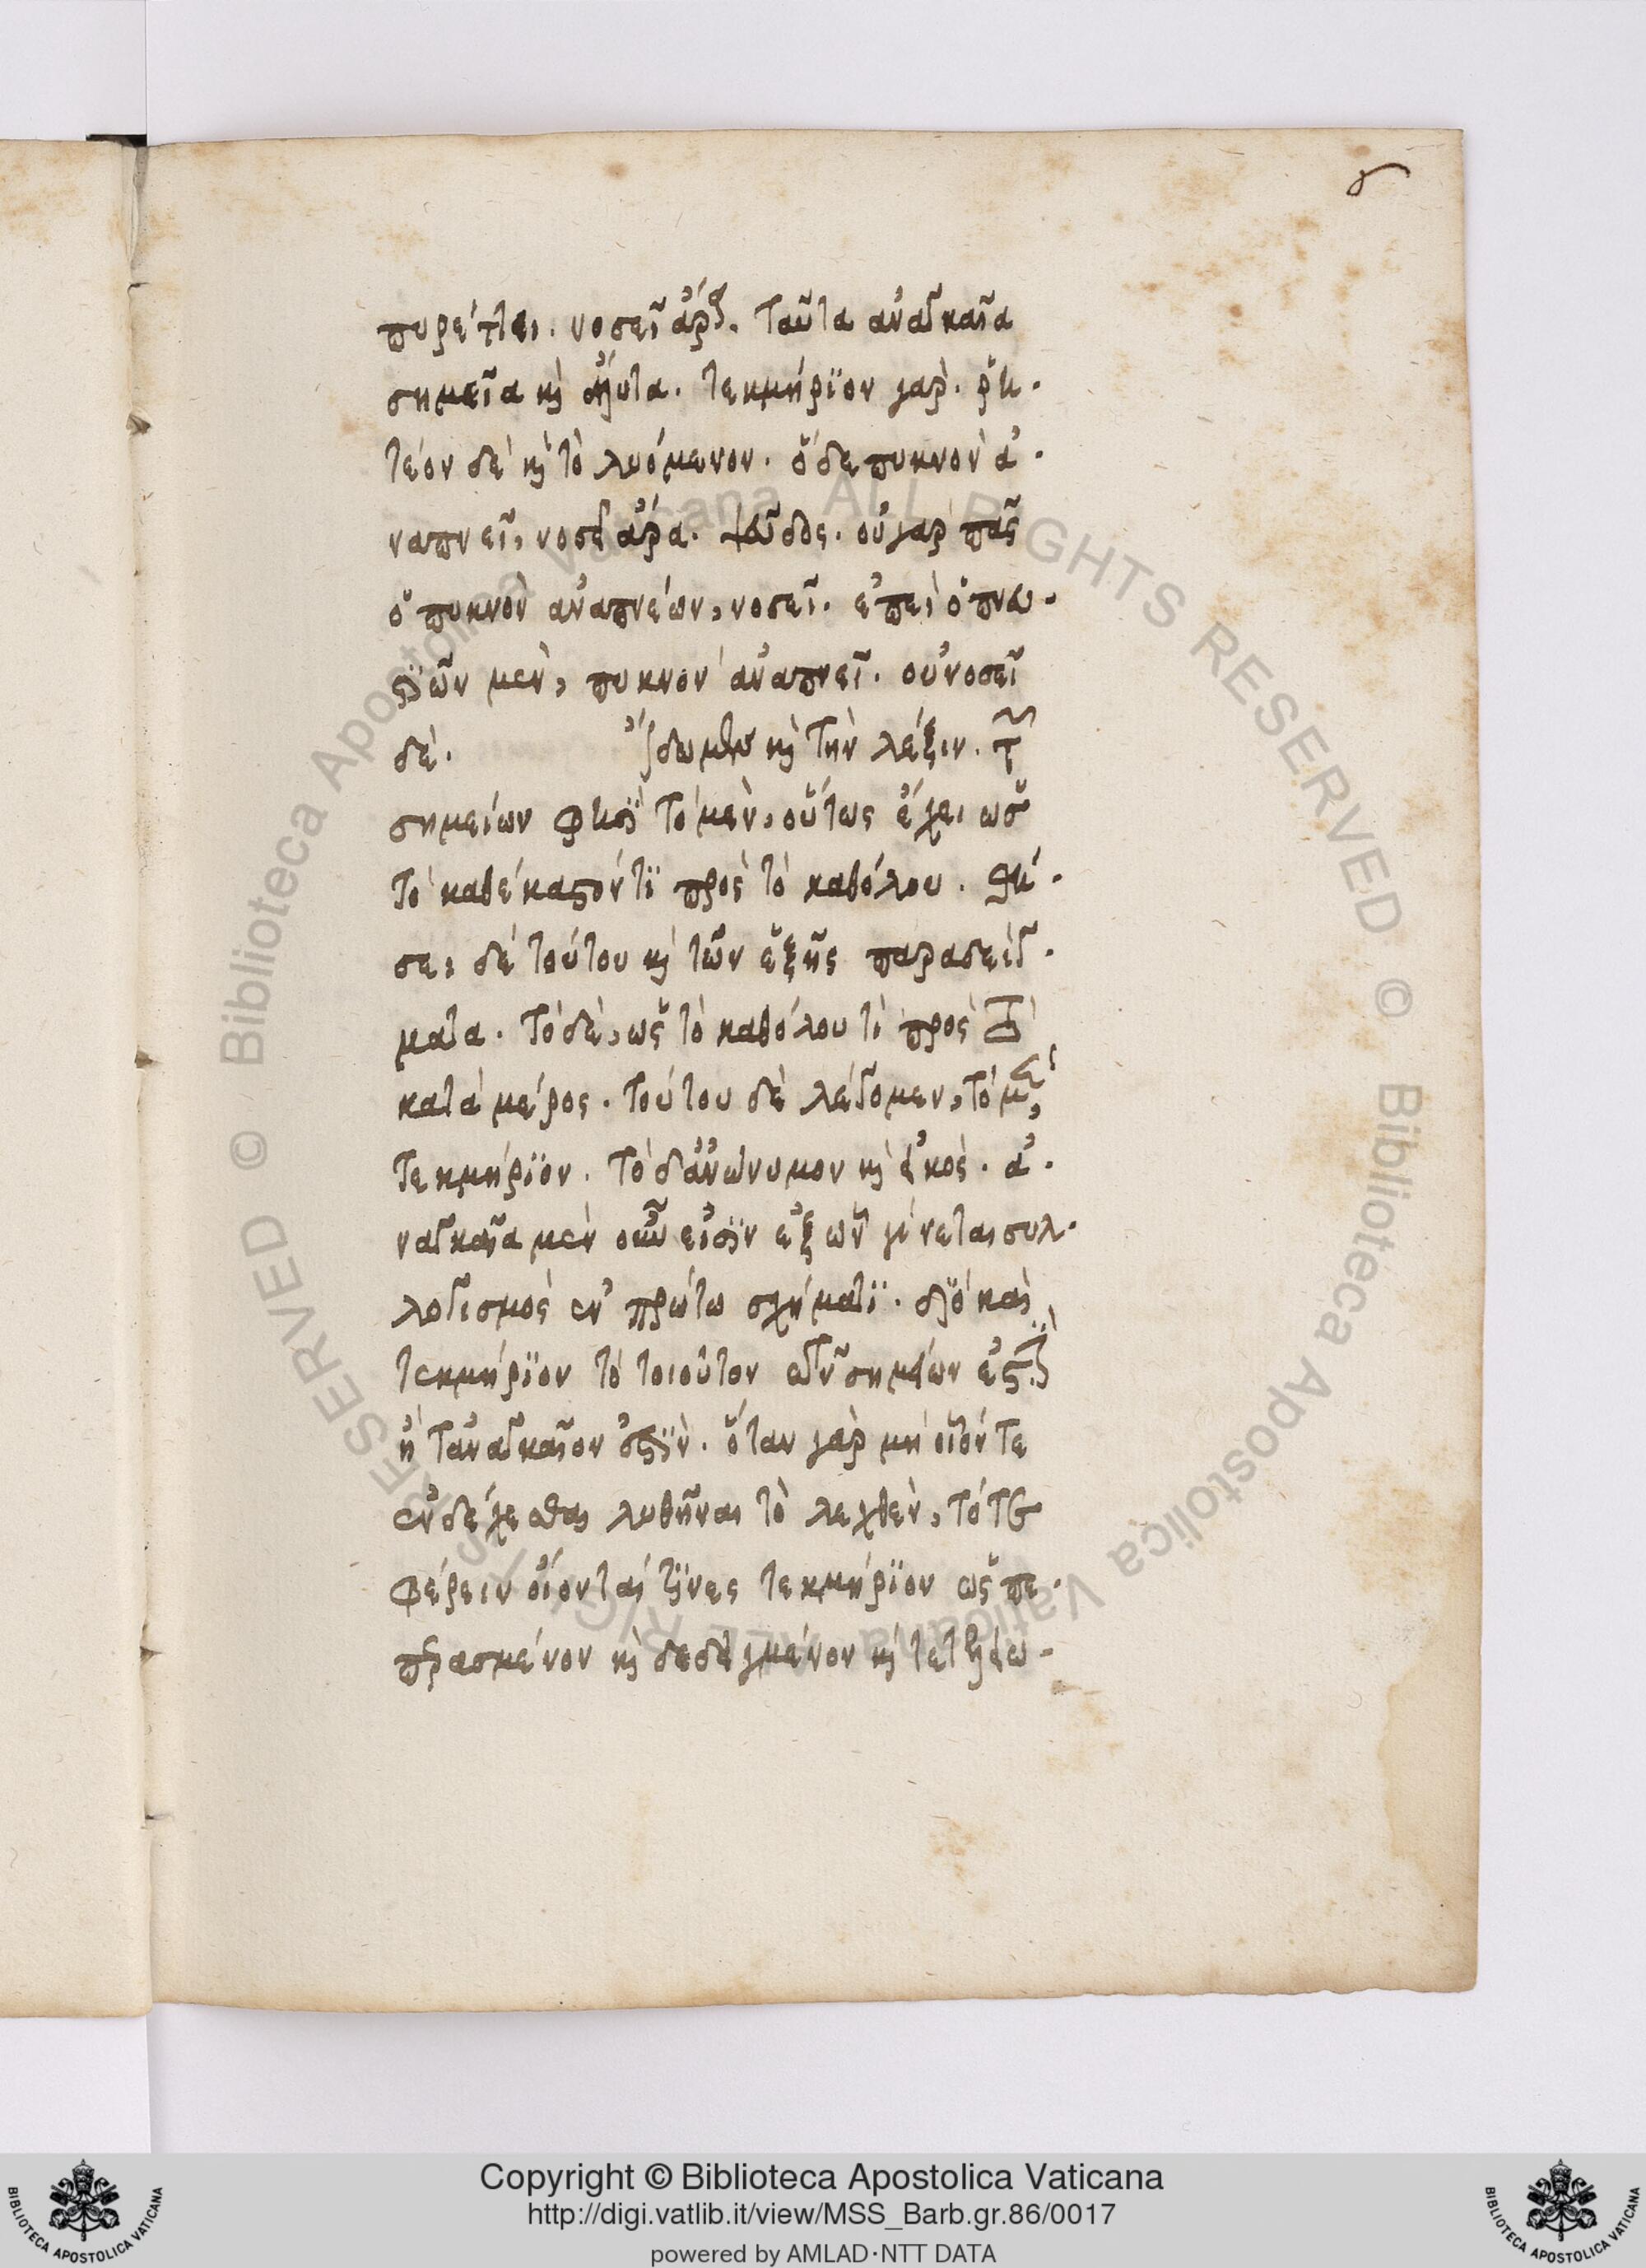 πυρέττει. νοσεῖ ἄρα. ταῦτα ἀναγκαῖα
σημεῖα καὶ ἄλυτα. τεκμήριον γὰρ. ῥη-
τέον δὲ καὶ τὸ λυόμενον. ὅδε πυκνὸν ἀ-
ναπνεῖ, νοσεῖ ἄρα. ψεῦδος. οὐ γὰρ πᾶς
ὁ πυκνὸν ἀναπνέων, νοσεῖ. ἐπεὶ ὁ πνευ-
στιῶν μὲν, πυκνὸν ἀναπνεῖ. οὐ νοσεῖ
δέ. Ἴδωμεν καὶ τὴν λέξιν. τῶν
σημείων φησὶ τὸ μὲν, οὕτως ἔχει ὡς
τὸ καθέκαστόν τι πρὸς τὸ καθόλου. θή-
σει δὲ τούτου καὶ τῶν ἑξῆς παραδείγ-
ματα. τὸ δὲ, ὡς τὸ καθόλου τι πρὸς τὸ
κατὰ μέρος. τούτου δὲ λέγομεν, τὸ μὲν,
τεκμήριον. τὸ δ' ἀνώνυμον καὶ εἰκός. ἀ-
ναγκαῖα μὲν οὖν εἰσὶν ἐξ ὧν γίνεται συλ-
λογισμὸς ἐν πρώτω σχήματι. διὸ καὶ
τεκμήριον τὸ τοιοῦτον τῶν σημείων ἐστὶν
ἢ τἀναγκαῖον ἐστὶν. ὅταν γὰρ μὴ οἷόν τε
ἐνδέχεσθαι λυθῆναι τὸ λεχθὲν, τότε
φέρειν οἴονταί τινες τεκμήριον ὡς πε-
πρασμένον καὶ δεδειγμένον καὶ τετελειω-
Copyright © Biblioteca Apostolica Vaticana
http://digi.vatlib.it/view/MSS_Barb.gr.86/0017
powered by AMLAD·NTT DATA
BIBLIOTECA APOSTOLICA VATICANA
BIBLIOTECA APOSTOLICA VATICANA
© Biblioteca Apostolica Vaticana ALL RIGHTS RESERVED
© Biblioteca Apostolica Vaticana ALL RIGHTS RESERVED